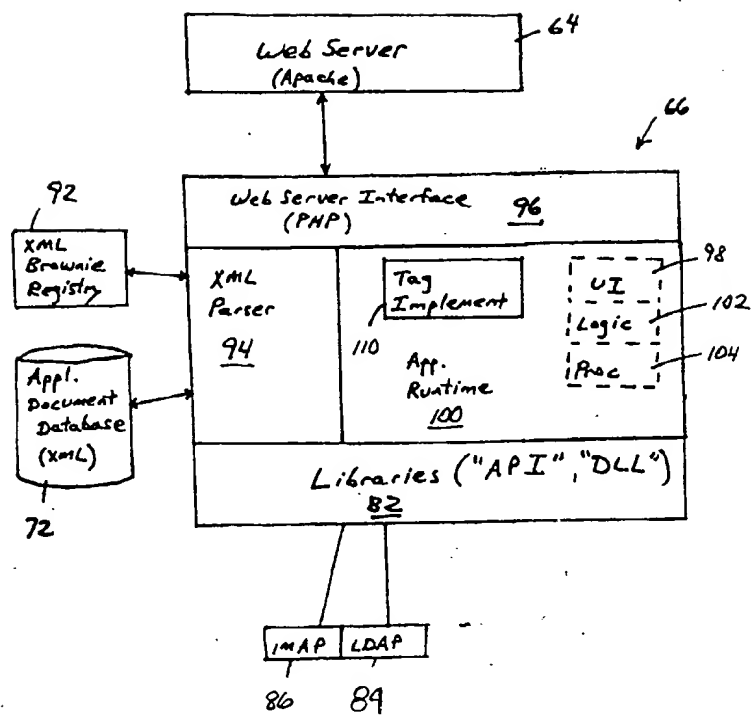 Web Server
(Apache)
64
66
Web Server Interface
(PHP)
96
92
XML
Brownie
Registry
XML
Parser
94
Tag
Implement
110
App.
Runtime
100
UI
Logic
Proc
98
102
104
Appl.
Document
Database
(XML)
72
Libraries ("API", "DLL")
82
IMAP
LDAP
86
84